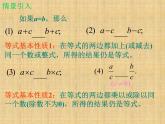 情景引入
如果a=b，那么
(1) a+c___b+c; (2) a-c___b-c.
等式基本性质1：在等式的两边都加上(或减去)
同一个数或整式，所得的结果仍是等式.
(3) ac___bc;
等式基本性质2：在等式的两边都乘以或除以同
一个数(除数不为0)，所得的结果仍是等式.